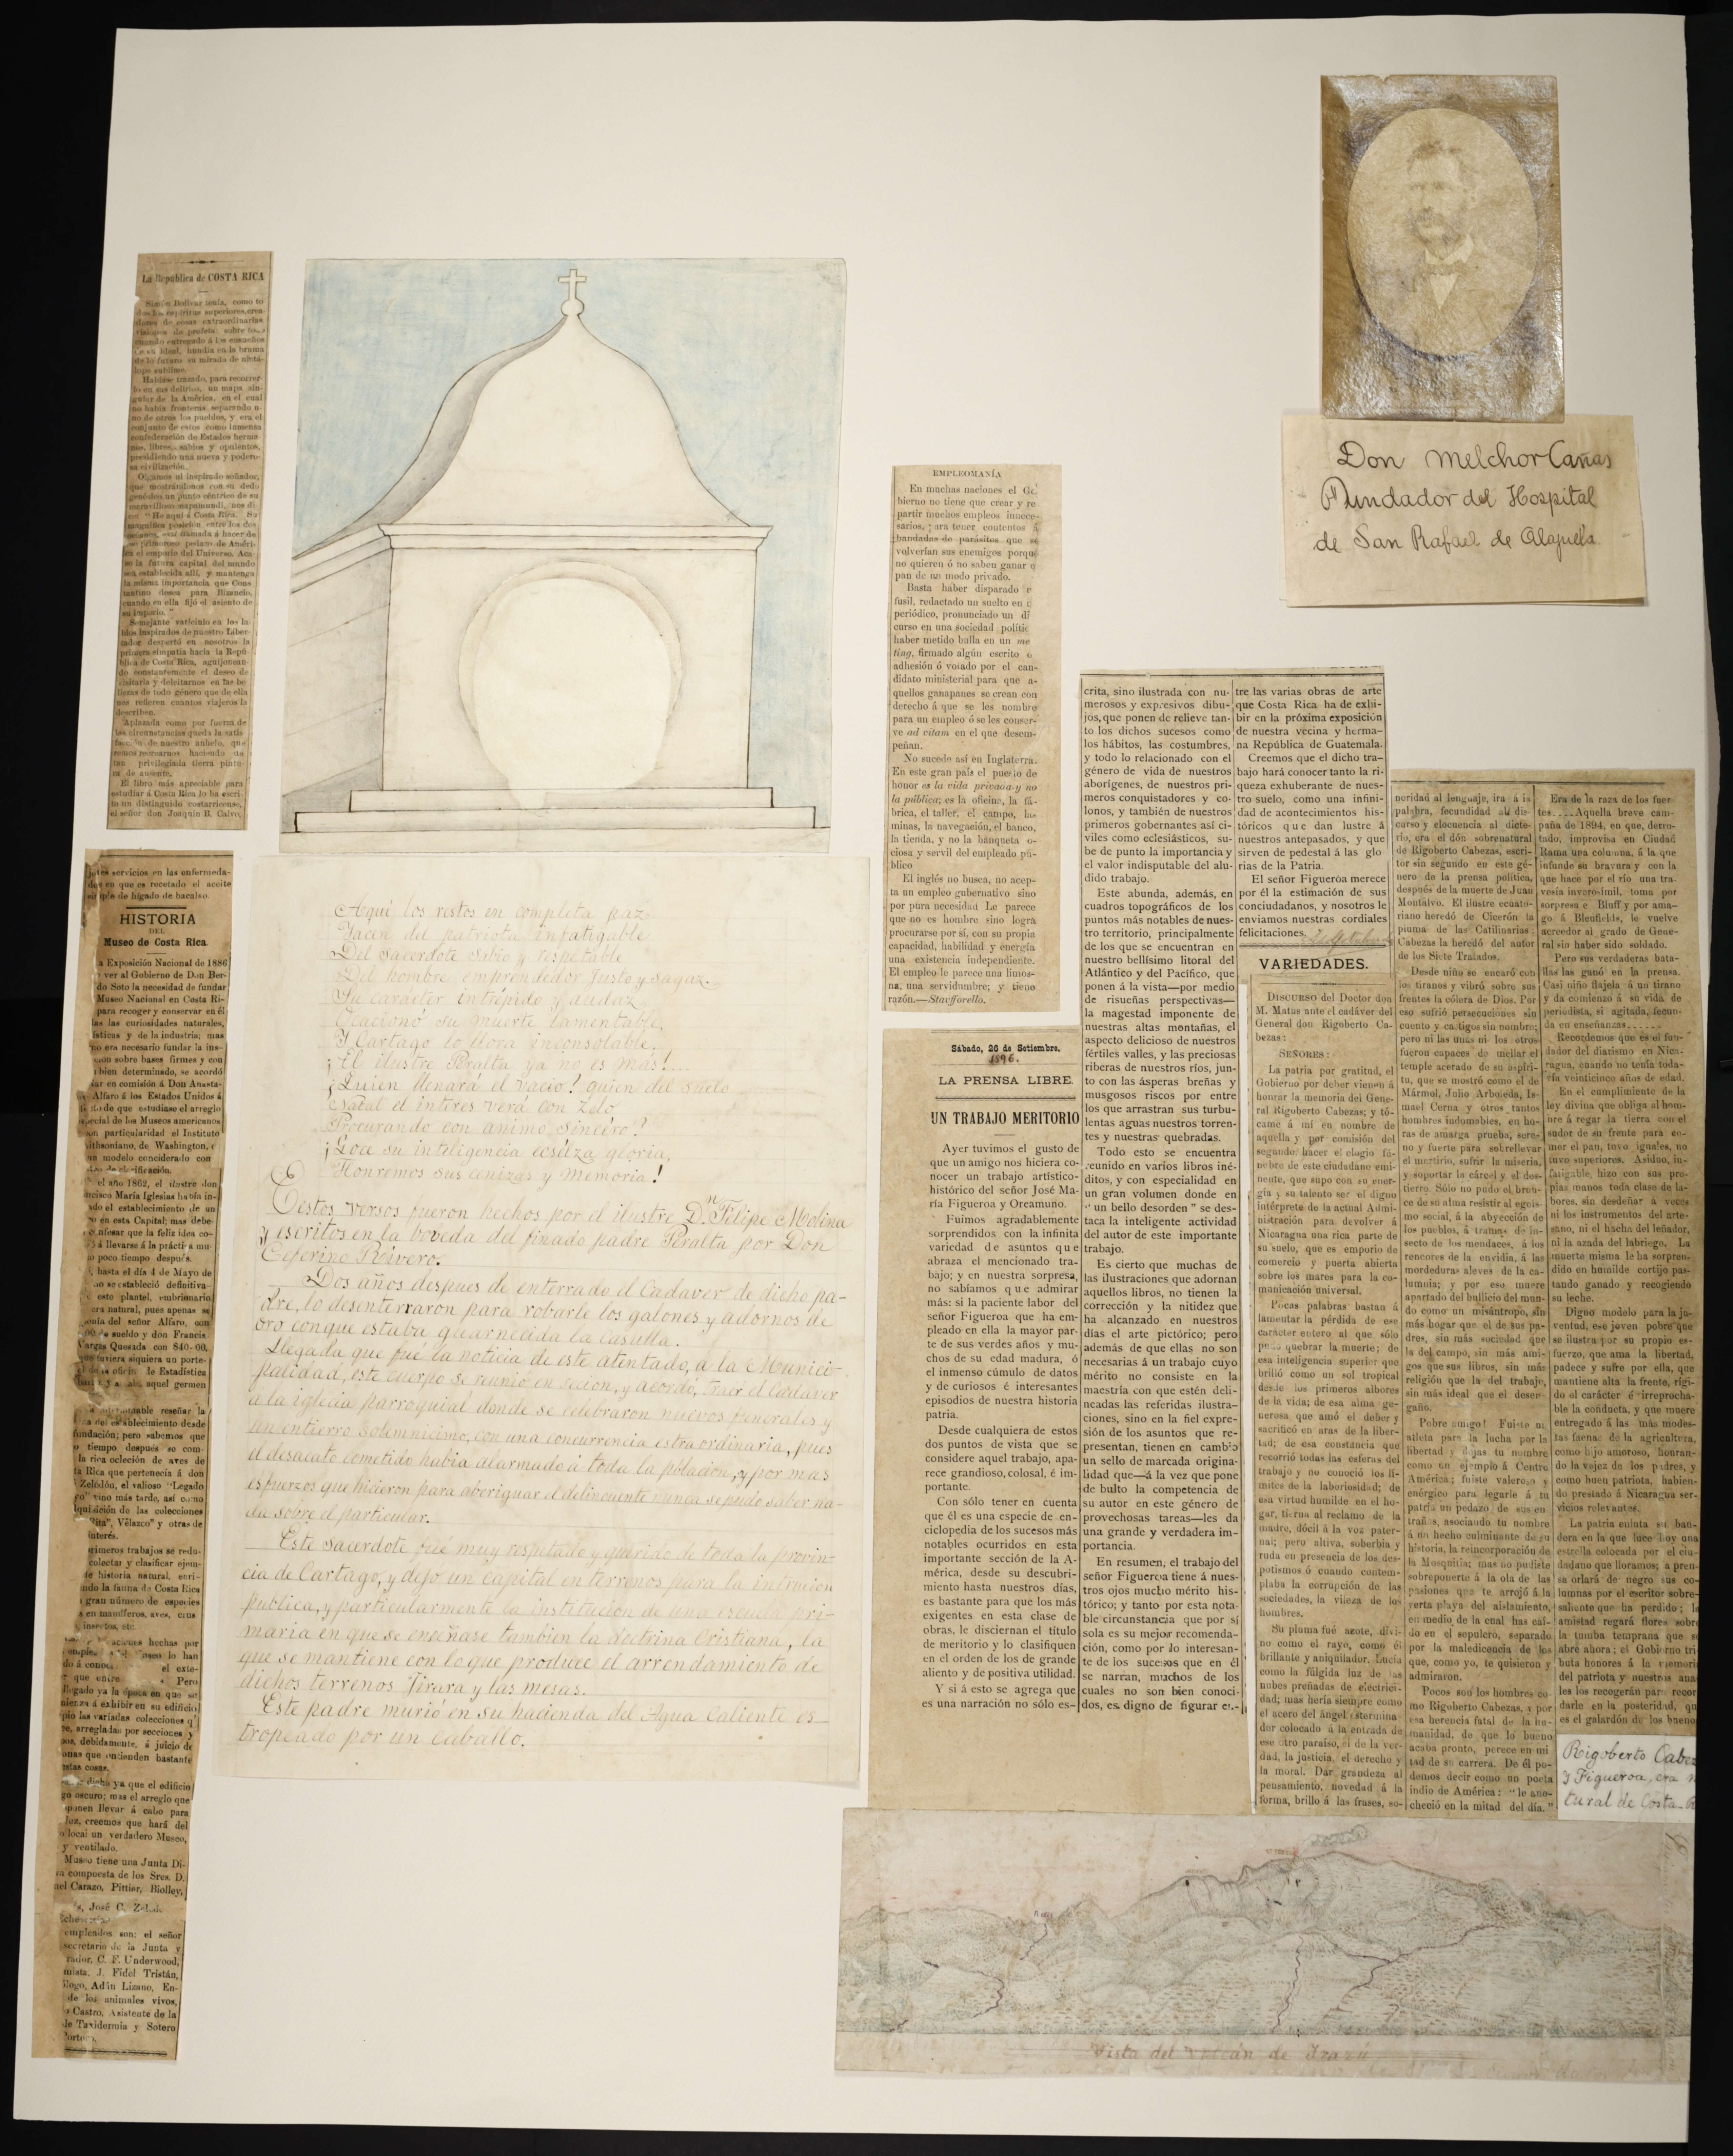 La República de COSTA RICA
Simón Bolívar tenía, como to
dos los espíritus superiores, crea-
dores de cosas extraordinarias
visiones de profeta: sobre to
cuando entregado á los ensueños
de su ideal, hundía en la bruma
de lo futuro su mirada de
sublime.
Habíase trazado, para recorrer-
lo en sus delirios, un mapa sin-
gular de la América, en el cual
no había fronteras separando u-
no de otros los pueblos, y era el
conjunto de estos como inmensa
confederación de Estados herma-
nos, libres, sabios y opulentos,
presidiendo una nueva y podero-
sa civilización.
Oigamos al inspirado soñador,
que mostrándonos con su dedo
un punto céntrico de su
maravilloso mapamundi, nos di-
ce: "He aquí á Costa Rica. Su
magnífica posición entre los dos
océanos, está llamada á hacer de
primoroso pedazo de Améri-
ca el emporio del Universo. Aca-
so la futura capital del mundo
sea establecida allí, y mantenga
la misma importancia que Cons
tantino desea para Bizancio,
cuando en ella fijó el asiento de
su imperio."
Semejante vaticinio en los la-
bios inspirados de nuestro Liber-
tador despertó en nosotros la
primera simpatía hacia la Repú
blica de Costa Rica, aguijonean-
do constantemente el deseo de
visitarla y deleitarnos en las be
llezas de todo género que de ella
nos refieren cuantos viajeros la
describen.
Aplazada como por fuerza de
las circunstancias queda la satis
facción de nuestro anhelo, que
remos recrearnos haciendo de
tan privilegiada tierra pintu-
ra de ausente.
El libro más apreciable para
estudiar á Costa Rica lo ha escri
to un distinguido costarricense,
el señor don Joaquín B. Calvo,
servicios en las enfermeda-
des en que es recetado el aceite
simple de hígado de bacalao.
HISTORIA
DEL
Museo de Costa Rica.
a Exposición Nacional de 1886
ver al Gobierno de Don Ber-
do Soto la necesidad de fundar
Museo Nacional en Costa Ri-
para recoger y conservar en él
las curiosidades naturales,
ísticas y de la industria; mas
no era necesario fundar la ins-
ción sobre bases firmes y con
bien determinado, se acordó
iar en comisión á Don Anasta-
Alfaro á los Estados Unidos á
de que estudiase el arreglo
special de los Museos americanos
on particularidad el Instituto
ithsoniano, de Washington,
un modelo conciderado con
clasificación.
el año 1862, el ilustre don
ncisco María Iglesias había in-
ado el establecimiento de un
o en esta Capital; mas debe-
onfesar que la feliz idea co-
á llevarse á la práctica mu-
o poco tiempo después.
hasta el día 4 de Mayo de
se estableció definitiva-
este plantel, embrionario
era natural, pues apenas se
onía del señor Alfaro, con
sueldo y don Francis
Vargas Quesada con $40-00,
que tuviera siquiera un porte-
oficina de Estadística
aquel germen
reseñar la
del establecimiento desde
fundación; pero sabemos que
tiempo después se com-
la rica colección de aves de
ta Rica que pertenecía á don
Zeledón, el valioso "Legado
vino más tarde, así como
quisición de las colecciones
Velazco" y otras de
interés.
primeros trabajos se redu-
colectar y clasificar ejem-
de historia natural, enri-
ndo la fauna de Costa Rica
gran número de especies
en mamíferos, aves, crus
insectos, etc.
aciones hechas por
lo han
do á conoc el exte-
que entre Pero
llegado ya la época en que se
mienza á exhibir en su edificio
pio las variadas colecciones q'
arregladas por secciones y
debidamente, á juicio de
onas que entienden bastante
estas cosas.
dicho ya que el edificio
go oscuro; mas el arreglo que
oponen llevar á cabo para
luz, creemos que hará del
local un verdadero Museo,
y ventilado.
Museo tiene una Junta Di-
va compuesta de los Sres. D.
nel Carazo, Pittier, Biolley,
José C. Zeled
empleados son: el señor
secretario de la Junta y
rador, C. F. Underwood,
mista, J. Fidel Tristán,
Adán Lizano, En-
de los animales vivos,
Castro, Asistente de la
de Taxidermia y Sotero
Portero.
Aquí los restos en completa paz
Jacen del patriota infatigable
Del Sacerdote sabio y respetable
Del hombre emprendedor justo y sagaz.
Su carácter intrépido y audaz
Ocacionó su muerte lamentable,
Y Cartago lo llora inconsolable.
¡El ilustre Peralta ya no es más!....
¿Quien llenará el vacío? quien del suelo
Natal el interes verá con zelo
Procurando con animo sincéro?
¡Goce su inteligencia eccélza gloria,
Honremos sus cenizas y memoria!
Eestos versos fueron hechos por el ilustre Dn. Felipe Molina
y escritos en la boveda del finado padre Peralta por Don
Ceferino Rivero.
Dos años despues de enterrado el Cadaver de dicho pa-
dre, lo desenterraron para robarle los galones y adornos de
oro con que estaba guarnecida la casulla.
Llegada que fué la noticia de este atentado, á la Munici-
palidad, este cuerpo se reunió en secion, y acordó, traer el Cadaver
á la iglecia parroquial donde se celebraron nuevos funerales y
un entierro Solemnicimo, con una concurrencia estraordinaria, pues
el desacato cometido había alarmado á toda la poblacion, y por mas
esfuerzos que hicieron para aberiguar el delincuente nunca se pudo saber na-
da sobre el particular.
Este Sacerdote fué muy respetado y querido de toda la provin-
cia de Cartago, y dejó un Capital en terrenos para la intrucion
publica, y particularmente la institucion de una escuela pri-
maria en que se enseñase tambien la doctrina Cristiana, la
que se mantiene con lo que produce el arrendamiento de
dichos terrenos Jirara y las mesas.
Este padre murió en su hacienda del Agua Caliente es-
tropeado por un caballo.
EMPLEOMANÍA
En muchas naciones el Go
bierno no tiene que crear y re
partir muchos empleos innece-
sarios, para tener contentos á
bandadas de parásitos que se
volverían sus enemigos porque
no quieren ó no saben ganar e
pan de un modo privado.
Basta haber disparado
fusil, redactado un suelto en
periódico, pronunciado un di
curso en una sociedad polític
haber metido bulla en un me
ting, firmado algún escrito
adhesión ó votado por el can-
didato ministerial para que a-
quellos ganapanes se crean con
derecho á que se les nombre
para un empleo ó se les conser-
ve ad vitam en el que desem-
peñan.
No sucede así en Inglaterra.
En este gran país el puesto de
honor es la vida privada y no
la pública; es la oficina, la fá-
brica, el taller, el campo, las
minas, la navegación, el banco,
la tienda, y no la banqueta o-
ciosa y servil del empleado pú-
blico
El inglés no busca, no acep-
ta un empleo gubernativo sino
por pura necesidad Le parece
que no es hombre sino logra
procurarse por sí, con su propia
capacidad, habilidad y energía
una existencia independiente.
El empleo le parece una limos-
na, una servidumbre; y tiene
razón.—Stavfforello.
Sábado, 26 de Setiembre.
1896.
LA PRENSA LIBRE.
UN TRABAJO MERITORIO
Ayer tuvimos el gusto de
que un amigo nos hiciera co-
nocer un trabajo artístico-
histórico del señor José Ma-
ría Figueroa y Oreamuno.
Fuimos agradablemente
sorprendidos con la infinita
variedad de asuntos que
abraza el mencionado tra-
bajo; y en nuestra sorpresa,
no sabíamos que admirar
más: si la paciente labor del
señor Figueroa que ha em-
pleado en ella la mayor par-
te de sus verdes años y mu-
chos de su edad madura, ó
el inmenso cúmulo de datos
y de curiosos é interesantes
episodios de nuestra historia
patria.
Desde cualquiera de estos
dos puntos de vista que se
considere aquel trabajo, apa-
rece grandioso, colosal, é im-
portante.
Con sólo tener en cuenta
que él es una especie de en-
ciclopedia de los sucesos más
notables ocurridos en esta
importante sección de la A-
mérica, desde su descubri-
miento hasta nuestros días,
es bastante para que los más
exigentes en esta clase de
obras, le disciernan el título
de meritorio y lo clasifiquen
en el orden de los de grande
aliento y de positiva utilidad.
Y si á esto se agrega que
es una narración no sólo es-
crita, sino ilustrada con nu-
merosos y expresivos dibu-
jos, que ponen de relieve tan-
to los dichos sucesos como
los hábitos, las costumbres,
y todo lo relacionado con el
género de vida de nuestros
aborígenes, de nuestros pri-
meros conquistadores y co-
lonos, y también de nuestros
primeros gobernantes así ci-
viles como eclesiásticos, su-
be de punto la importancia y
el valor indisputable del alu-
dido trabajo.
Este abunda, además, en
cuadros topográficos de los
puntos más notables de nues-
tro territorio, principalmente
de los que se encuentran en
nuestro bellísimo litoral del
Atlántico y del Pacífico, que
ponen á la vista—por medio
de risueñas perspectivas—
la magestad imponente de
nuestras altas montañas, el
aspecto delicioso de nuestros
fértiles valles, y las preciosas
riberas de nuestros ríos, jun-
to con las ásperas breñas y
musgosos riscos por entre
los que arrastran sus turbu-
lentas aguas nuestros torren-
tes y nuestras quebradas.
Todo esto se encuentra
reunido en varios libros iné-
ditos, y con especialidad en
un gran volumen donde en
"un bello desorden" se des-
taca la inteligente actividad
del autor de este importante
trabajo.
Es cierto que muchas de
las ilustraciones que adornan
aquellos libros, no tienen la
corrección y la nitidez que
ha alcanzado en nuestros
días el arte pictórico; pero
además de que ellas no son
necesarias á un trabajo cuyo
mérito no consiste en la
maestría con que estén deli-
neadas las referidas ilustra-
ciones, sino en la fiel expre-
sión de los asuntos que re-
presentan, tienen en cambio
un sello de marcada origina-
lidad que—á la vez que pone
de bulto la competencia de
su autor en este género de
provechosas tareas—les da
una grande y verdadera im-
portancia.
En resumen, el trabajo del
señor Figueroa tiene á nues-
tros ojos mucho mérito his-
tórico; y tanto por esta nota-
ble circunstancia que por sí
sola es su mejor recomenda-
ción, como por lo interesan-
te de los sucesos que en él
se narran, muchos de los
cuales no son bien conoci-
dos, es digno de figurar en-
tre las varias obras de arte
que Costa Rica ha de exhi-
bir en la próxima exposición
de nuestra vecina y herma-
na República de Guatemala.
Creemos que el dicho tra-
bajo hará conocer tanto la ri-
queza exhuberante de nues-
tro suelo, como una infini-
dad de acontecimientos his-
tóricos que dan lustre á
nuestros antepasados, y que
sirven de pedestal á las glo
rias de la Patria.
El señor Figueroa merece
por él la estimación de sus
conciudadanos, y nosotros le
enviamos nuestras cordiales
felicitaciones.
VARIEDADES.
DISCURSO del Doctor don
M. Matus ante el cadáver del
General don Rigoberto Ca-
bezas:
SEÑORES:
La patria por gratitud, el
Gobierno por deber vienen á
honrar la memoria del Gene-
ral Rigoberto Cabezas; y tó-
came á mí en nombre de
aquella y por comisión del
segundo hacer el elogio fú-
nebre de este ciudadano emi-
nente, que supo con su ener-
gía y su talento ser el digno
intérprete de la actual Admi-
nistración para devolver á
Nicaragua una rica parte de
su suelo, que es emporio de
comercio y puerta abierta
sobre los mares para la co-
municación universal.
Pocas palabras bastan á
lamentar la pérdida de ese
carácter entero al que sólo
pudo quebrar la muerte; de
esa inteligencia superior que
brilló como un sol tropical
desde los primeros albores
de la vida; de esa alma ge-
nerosa que amó el deber y
sacrificó en aras de la liber-
tad; de esa constancia que
recorrió todas las esferas del
trabajo y no conoció los lí-
mites de la laboriosidad; de
esa virtud humilde en el ho-
gar, tierna al reclamo de la
madre, dócil á la voz pater-
nal; pero altiva, soberbia y
ruda en presencia de los des-
potismos ó cuando contem-
plaba la corrupción de las
sociedades, la vileza de los
hombres.
Su pluma fué azote, divi-
no como el rayo, como él
brillante y aniquilador. Lucía
como la fúlgida luz de las
nubes preñadas de electrici-
dad; mas hería siempre como
el acero del ángel extermina-
dor colocado á la entrada de
ese otro paraíso, el de la ver-
dad, la justicia, el derecho y
la moral. Dar grandeza al
pensamiento, novedad á la
forma, brillo á las frases, so-
noridad al lenguaje, ira á la
palabra, fecundidad al dis-
curso y elocuencia al dicte-
rio, era el dón sobrenatural
de Rigoberto Cabezas, escri-
tor sin segundo en este gé-
nero de la prensa política,
después de la muerte de Juan
Montalvo. El ilustre ecuato-
riano heredó de Cicerón la
pluma de las Catilinarias:
Cabezas la heredó del autor
de los Siete Tratados.
Desde niño se encaró con
los tiranos y vibró sobre sus
frentes la cólera de Dios. Por
eso sufrió persecuciones sin
cuento y castigos sin nombre;
pero ni las unas ni los otros
fueron capaces de mellar el
temple acerado de su espíri-
tu, que se mostró como el de
Mármol, Julio Arboleda, Is-
mael Cerna y otros tantos
hombres indomables, en ho-
ras de amarga prueba, sere-
no y fuerte para sobrellevar
el martirio, sufrir la miseria,
y soportar la cárcel y el des-
tierro. Sólo no pudo el bron-
ce de su alma resistir al egois-
mo social, á la abyección de
los pueblos, á tramas de in-
secto de los mendaces, á los
rencores de la envidia, á las
mordeduras aleves de la ca-
lumnia; y por eso muere
apartado del bullicio del mun-
do como un misántropo, sin
más hogar que el de sus pa-
dres, sin más sociedad que
la del campo, sin más ami-
gos que sus libros, sin más
religión que la del trabajo,
sin más ideal que el desen-
gaño.
Pobre amigo! Fuiste un
atleta para la lucha por la
libertad y dejas tu nombre
como un ejemplo á Centro
América; fuiste valeroso y
enérgico para legarle á tu
patria un pedazo de sus en
trañas, asociando tu nombre
á un hecho culminante de su
historia, la reincorporación de
la Mosquitia; mas no pudiste
sobreponerte á la ola de las
pasiones que te arrojó á la
yerta playa del aislamiento,
en medio de la cual has caí-
do en el sepulcro, separado
por la maledicencia de los
que, como yo, te quisieron y
admiraron.
Pocos son los hombres co-
mo Rigoberto Cabezas, y por
esa herencia fatal de la hu-
manidad, de que lo bueno
acaba pronto, perece en mi
tad de su carrera. De él po-
demos decir como un poeta
indio de América: "le ano-
checió en la mitad del día."
Era de la raza de los fuer-
tes....Aquella breve cam-
paña de 1894, en que, derro-
tado, improvisa en Ciudad
Rama una columna, á la que
infunde su bravura y con la
que hace por el río una tra-
vesía inverosímil, toma por
sorpresa el Bluff y por ama-
go á Bleufields, le vuelve
acreedor al grado de Gene-
ral sin haber sido soldado.
Pero sus verdaderas bata-
llas las ganó en la prensa.
Casi niño flajela á un tirano
y da comienzo á su vida de
periodista, si agitada, fecun-
da en enseñanzas......
Recordemos que es el fun-
dador del diarismo en Nica-
ragua, cuando no tenía toda-
vía veinticinco años de edad.
En el cumplimiento de la
ley divina que obliga al hom-
bre á regar la tierra con el
sudor de su frente para co-
mer el pan, tuvo iguales, no
tuvo superiores. Asiduo, in-
fatigable, hizo con sus pro-
pias manos toda clase de la-
bores, sin desdeñar á veces
ni los instrumentos del arte-
sano, ni el hacha del leñador,
ni la azada del labriego. La
muerte misma le ha sorpren-
dido en humilde cortijo pas-
tando ganado y recogiendo
su leche.
Digno modelo para la ju-
ventud, ese joven pobre que
se ilustra por su propio es-
fuerzo, que ama la libertad,
padece y sufre por ella, que
mantiene alta la frente, rígi-
do el carácter é irreprocha-
ble la conducta, y que muere
entregado á las más modes-
tas faenas de la agricultura,
como hijo amoroso, honran-
do la vejez de los padres, y
como buen patriota, habien-
do prestado á Nicaragua ser-
vicios relevantes.
La patria enluta su ban-
dera en la que luce hoy una
estrella colocada por el ciu-
dadano que lloramos; a pren-
sa orlará de negro sus co-
lumnas por el escritor sobre-
saliente que ha perdido; la
amistad regará flores sobre
la tumba temprana que se
abre ahora; el Gobierno tri
buta honores á la memoria
del patriota y nuestros ana
les los recogerán para recor
darle en la posteridad, qu
es el galardón de los bueno
Rigoberto Cabez
y Figueroa, era n
tural de Costa-R
Don Melchor Cañas
Fundador del Hospital
de San Rafael de Alajuela
Vista del volcán de Irazú